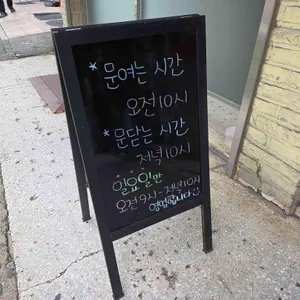 * 문여는 시간
오전 10시
* 문닫는 시간
저녁 10시
일요일만
오전 9시 - 저녁 10시
영업합니다